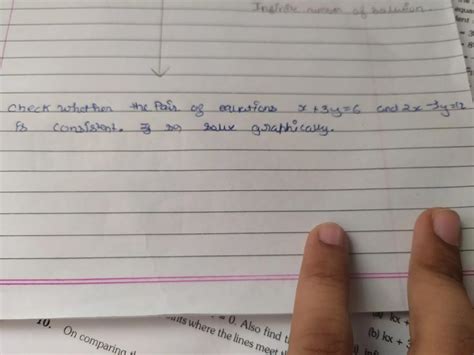 Infinite number of solution.
Check whether the Pair of equations x + 3y = 6 and 2x - 3y = 12
is consistent. If so solve graphically.
10. On comparing th
= 0. Also find t
nts where the lines meet th
(a) kx +
(b) kx + 3